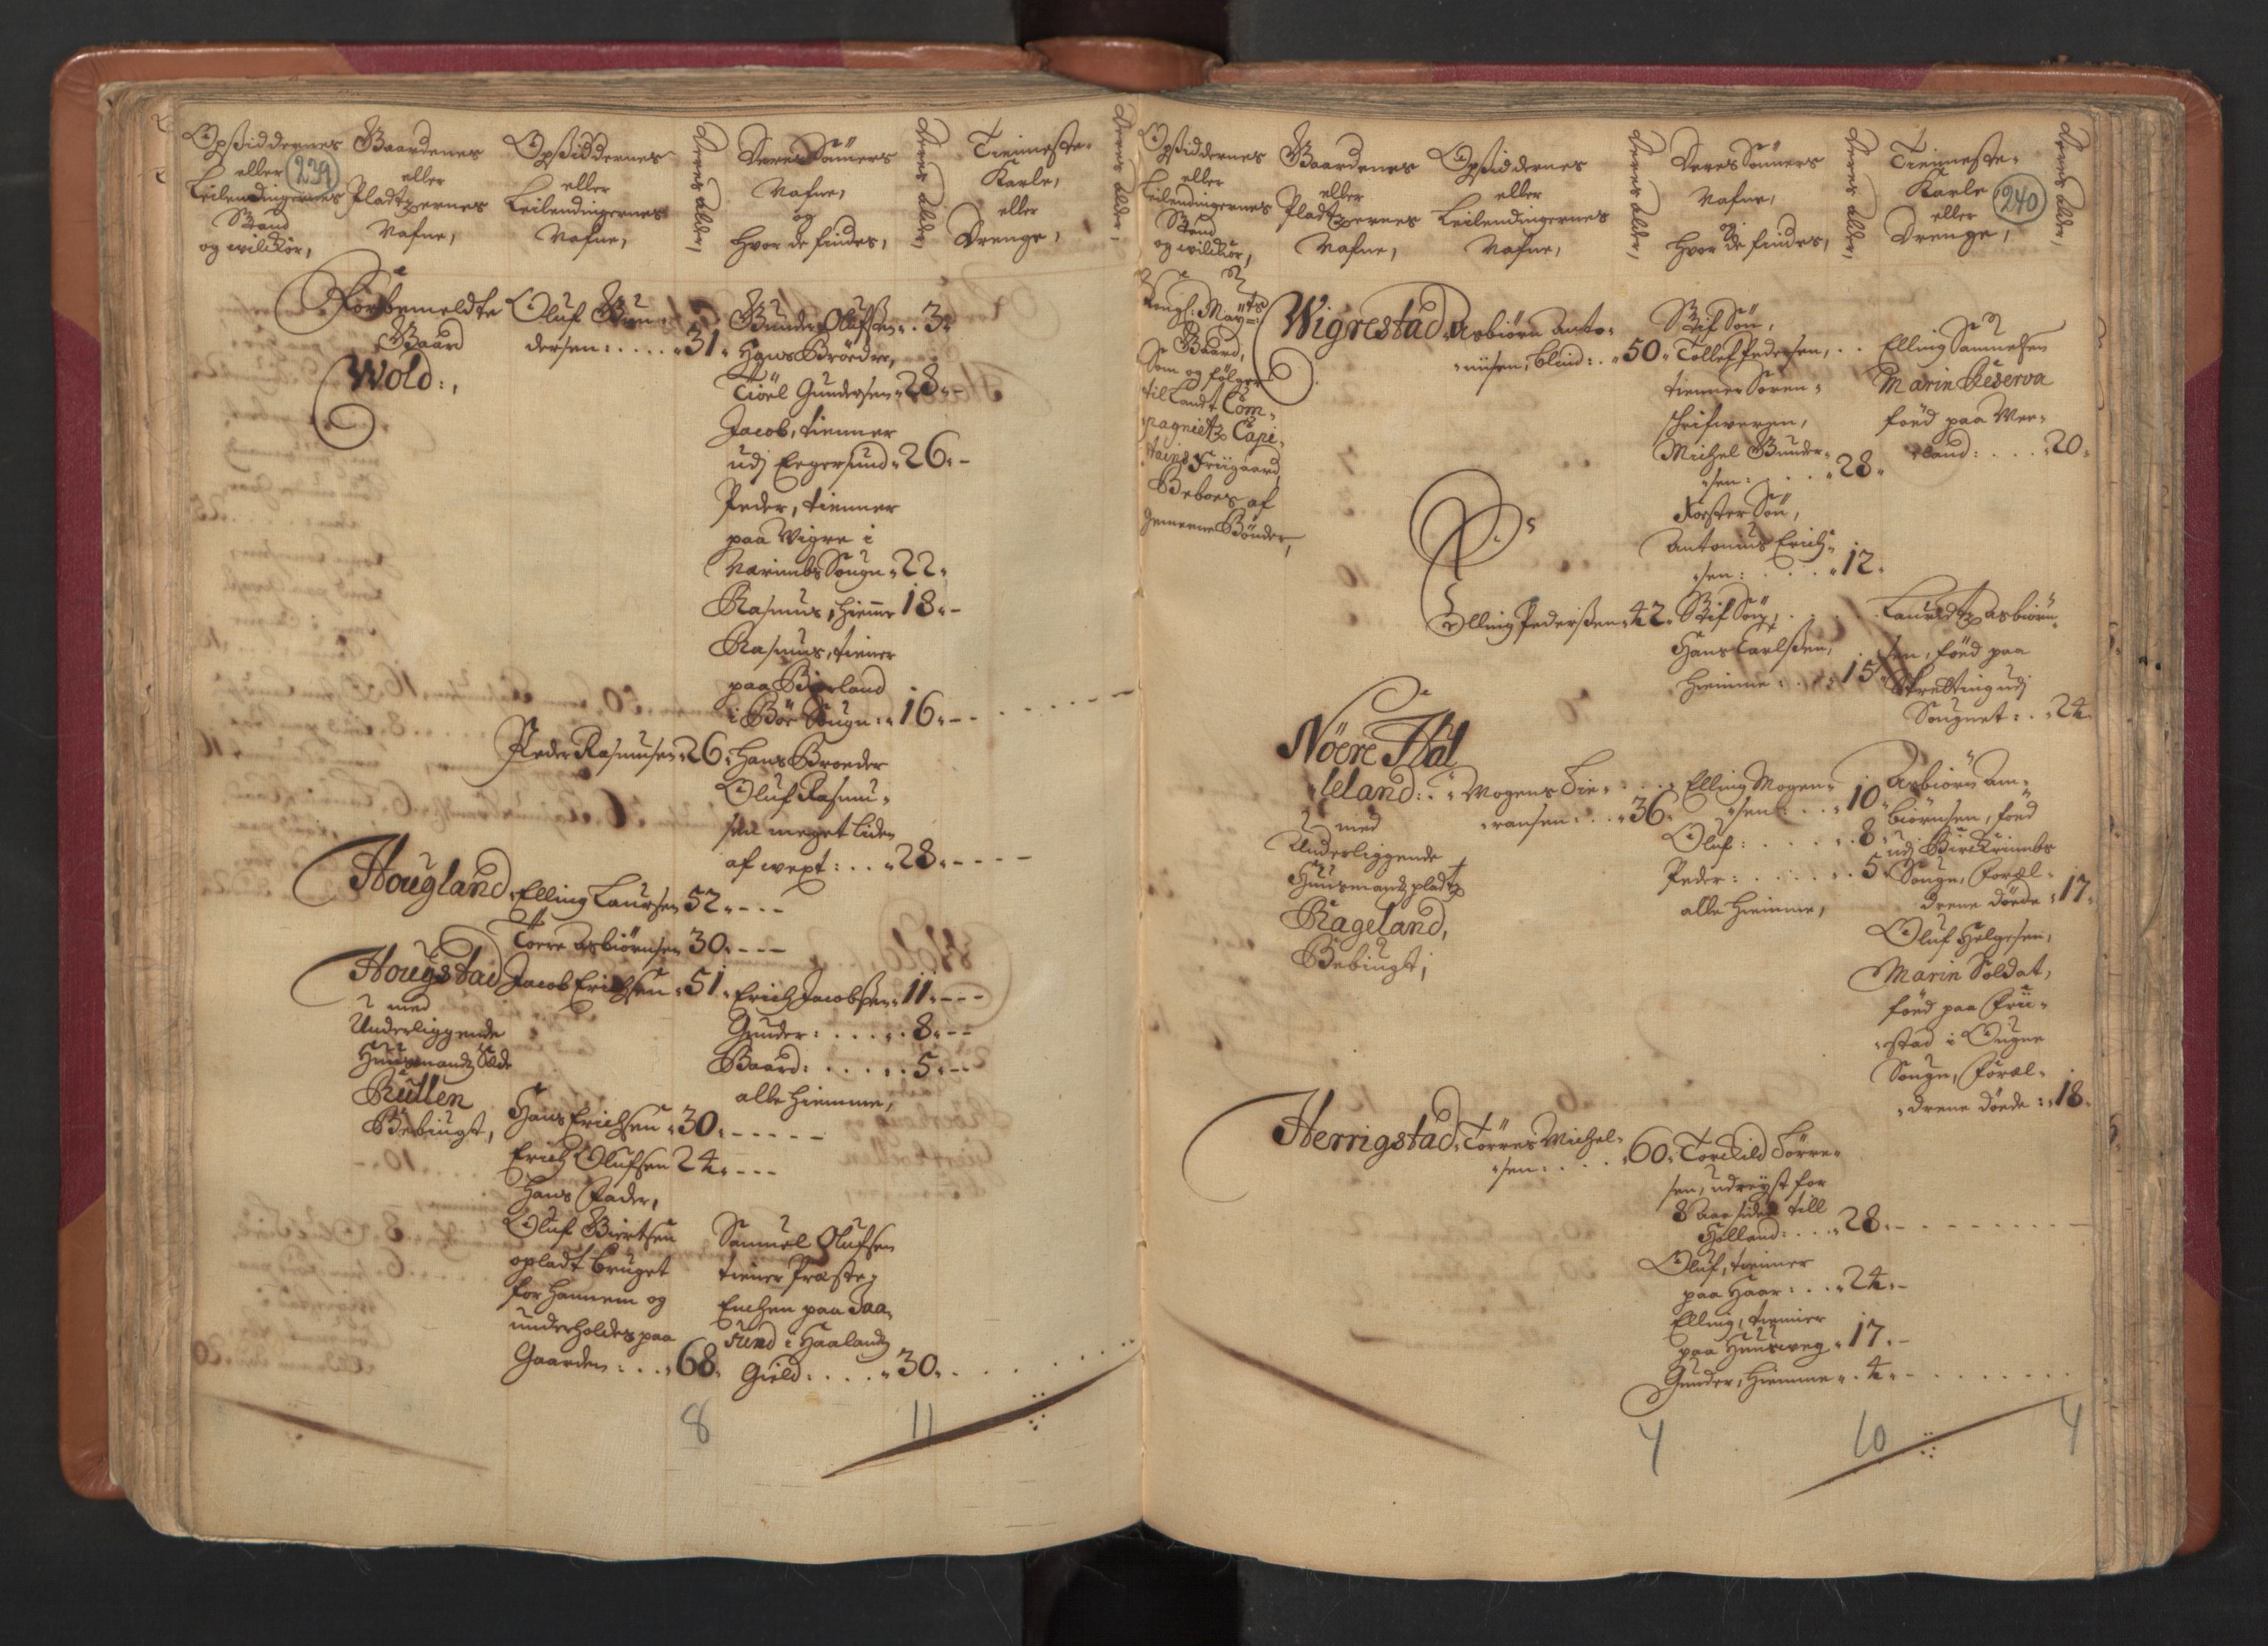 239
Opsiddernes
eller
Leilendingernes
Stand
og wilckor,
Gaardenes
eller
Pladtzernes
Nafne,
Opsiddernes
eller
Leilendingernes
Nafne,
deres alder,
Deres Sönners
Nafne,
og
hvor de findes,
deres alder,
Tienneste-
Karle,
eller
Drenge,
deres alder,
Forbemeldte
Gaard
Wold:,
Oluf Gun-
dersen: . . . . 31.
Gunder Olufsen . 3.
Hans Brödre,
Tiöel Gundersen 28.-
Jacob, tienner
udj Eegersund . 26.-
Peder, tienner
paa Vigre i
Narimbs Sougn . 22.
Rasmus, hieme 18.-
Rasmus, tiener
paa Birland
i Böe Sougn: . 16.-
Peder Rasmusen . 26.
Hans Broeder
Oluf Rasmu-
sen meget liden
af wext: . . . 28.
Hougland
Elling Laursen 52.
Toere Asbiörnsen 30.
Hougstad
med
Underliggende
Huusmands Øde
Rüllen
Bebiugt,
Jacob Erichsen . 51.
Erich Jacobsen . 11.
Gunder: . . . . . 8.
Baard: . . . . . 5.
alle hiemme,
Hans Erichsen . 30.
Erich Olufsen 24.
Hans Fader,
Oluf Biertsen
opladt bruget
for hannem og
underholdes paa
Gaarden: . . . 68.
Samuel Olufsen
tiener Præste-
Enchen paa Saa-
sund i Haalands
Gield: . . . . 30.
8
11
240
Opsiddernes
eller
Leilendingernes
Stand
og wilckor,
Gaardenes
eller
Pladtzernes
Nafne,
Opsiddernes
eller
Leilendingernes
Nafne,
deres alder,
Deres Sönners
Nafne,
og
hvor de findes,
deres alder,
Tienneste-
Karle
eller
Drenge,
deres alder,
Kongl: Mayts:
Gaard,
Som og fölger
til Landt Com-
pagniets Capi-
tains Friigaard
Beboes af
gemeene Bönder,
Wigrestad
Asbiörn Anto-
niisen, blind: . . 50.
Stif Sön,
Tollef Pedersen, . .
tienner Soren-
schrifweren,
Michel Gunder-
sen: . . . . 28.
Foster Sön,
Antonius Erich-
sen: . . . . 12.
Elling Samuelsen
Marin Reserva
föed paa Wer-
land: . . . . 20.
Elling Pedersen . 42.
Stif Sön, . . .
Hans Carlsen,
hiemme: . . . 15
Lauridtz Asbiörn-
sen, föed paa
Skretting udj
Sougnet: . . 24.
Nöere Häl
leland: . .
med
Underliggende
Huusmands pladtz
Rageland,
Bebiugt;
Mogens Sie-
vansen: . . . 36.
Elling Mogen-
sen: . . . 10
Oluf: . . . . . 8.
Peder: . . . . . 5.
alle hiemme,
Asbiörn Am-
biörnsen, föed
udj Birckrimbs
Sougn, Foræl-
drene döede . 17.
Oluf Helgesen,
Marin Soldat,
föed paa Frii-
stad i Ougne
Sougn, Foræl-
drene döede: . 18.
Herrigstad
Törres Michel-
sen: . . . . 60.
Torckild Törre-
sen, udreyst for
8 Aar siden till
Holland: . . . 28.
Oluf, tienner
paa Haar: . . . 24.-
Elling, tienner
paa Huusweg . 17.-
Gunder, hiemme . 4.
4
10
4